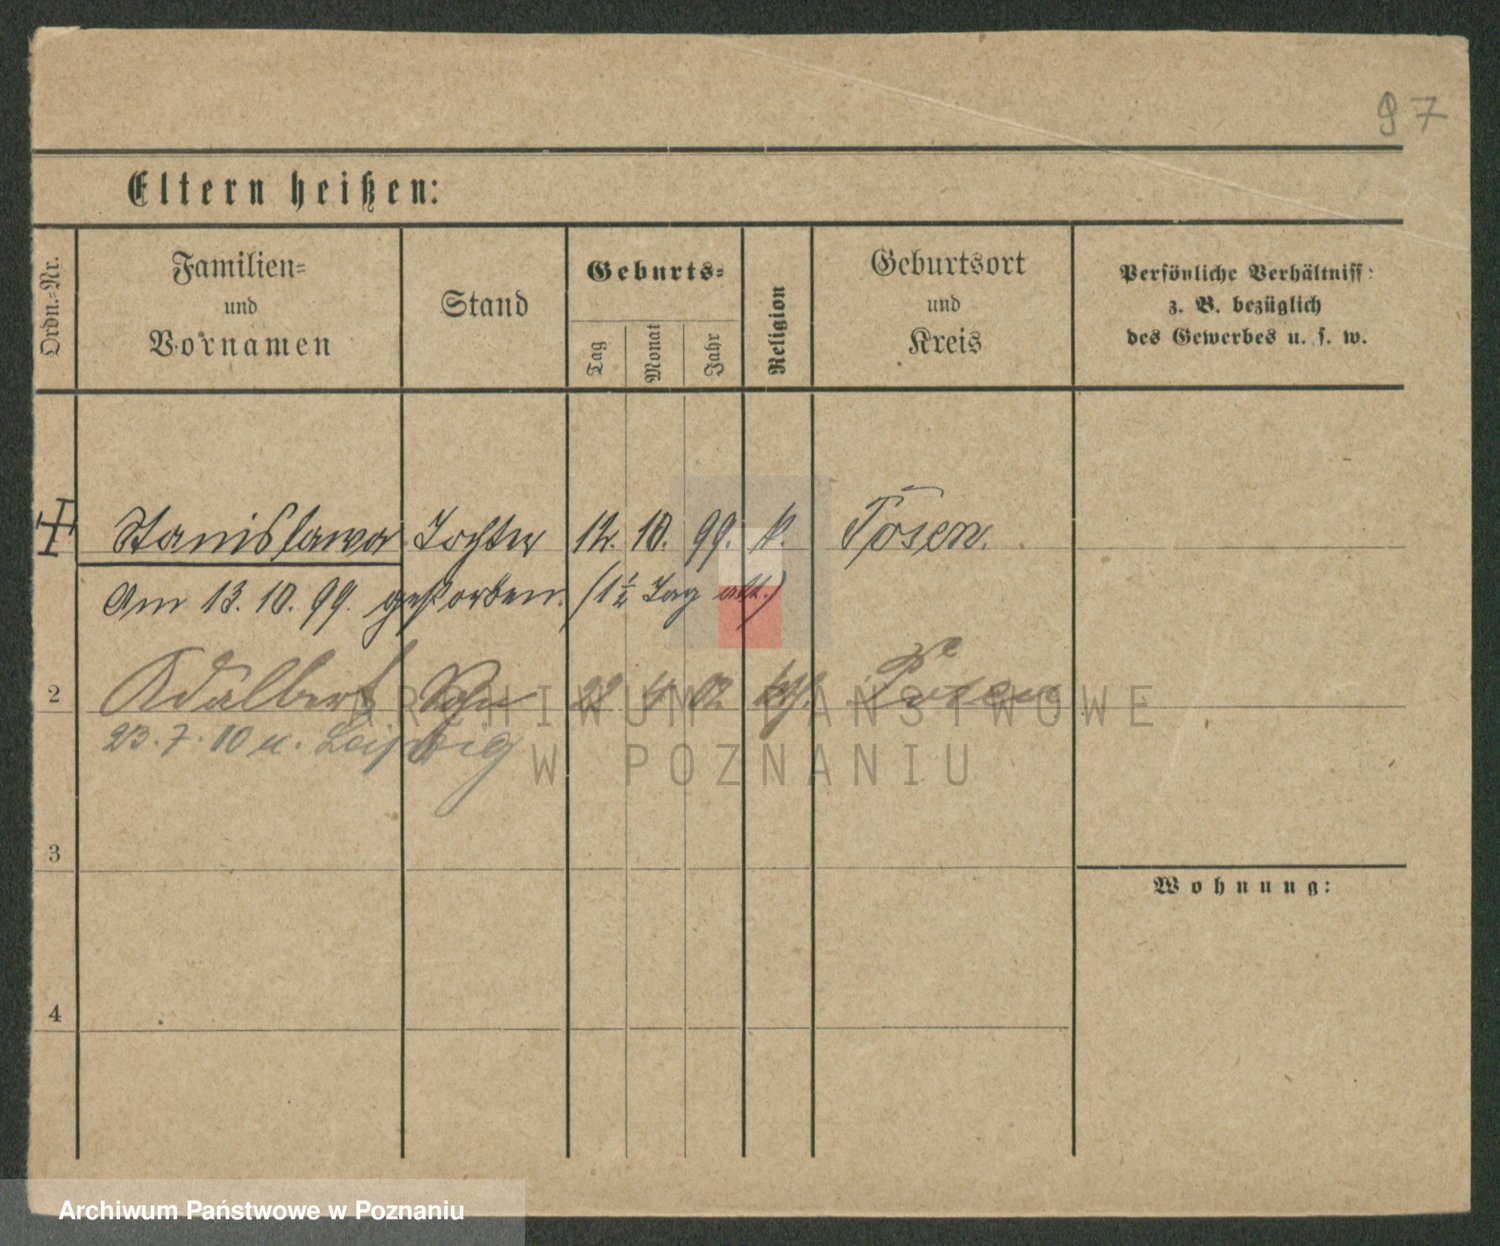 97
Eltern heißen:
Ordn.-Nr. Familien- und Vornamen Stand Geburts- Tag Monat Jahr Religion Geburtsort und Kreis Persönliche Verhältniss: z. B. bezüglich des Gewerbes u. s. w.
Stanislawa Tochter 12. 10. 99. k. Posen.
Am 13. 10. 99. gestorben. (1½ Tag alt.)
2 Adalbert Sohn 4 02 kth. Posen
23.7.10 n. Leipzig
3
Wohnung:
4
ARCHIWUM PAŃSTWOWE
W POZNANIU
Archiwum Państwowe w Poznaniu